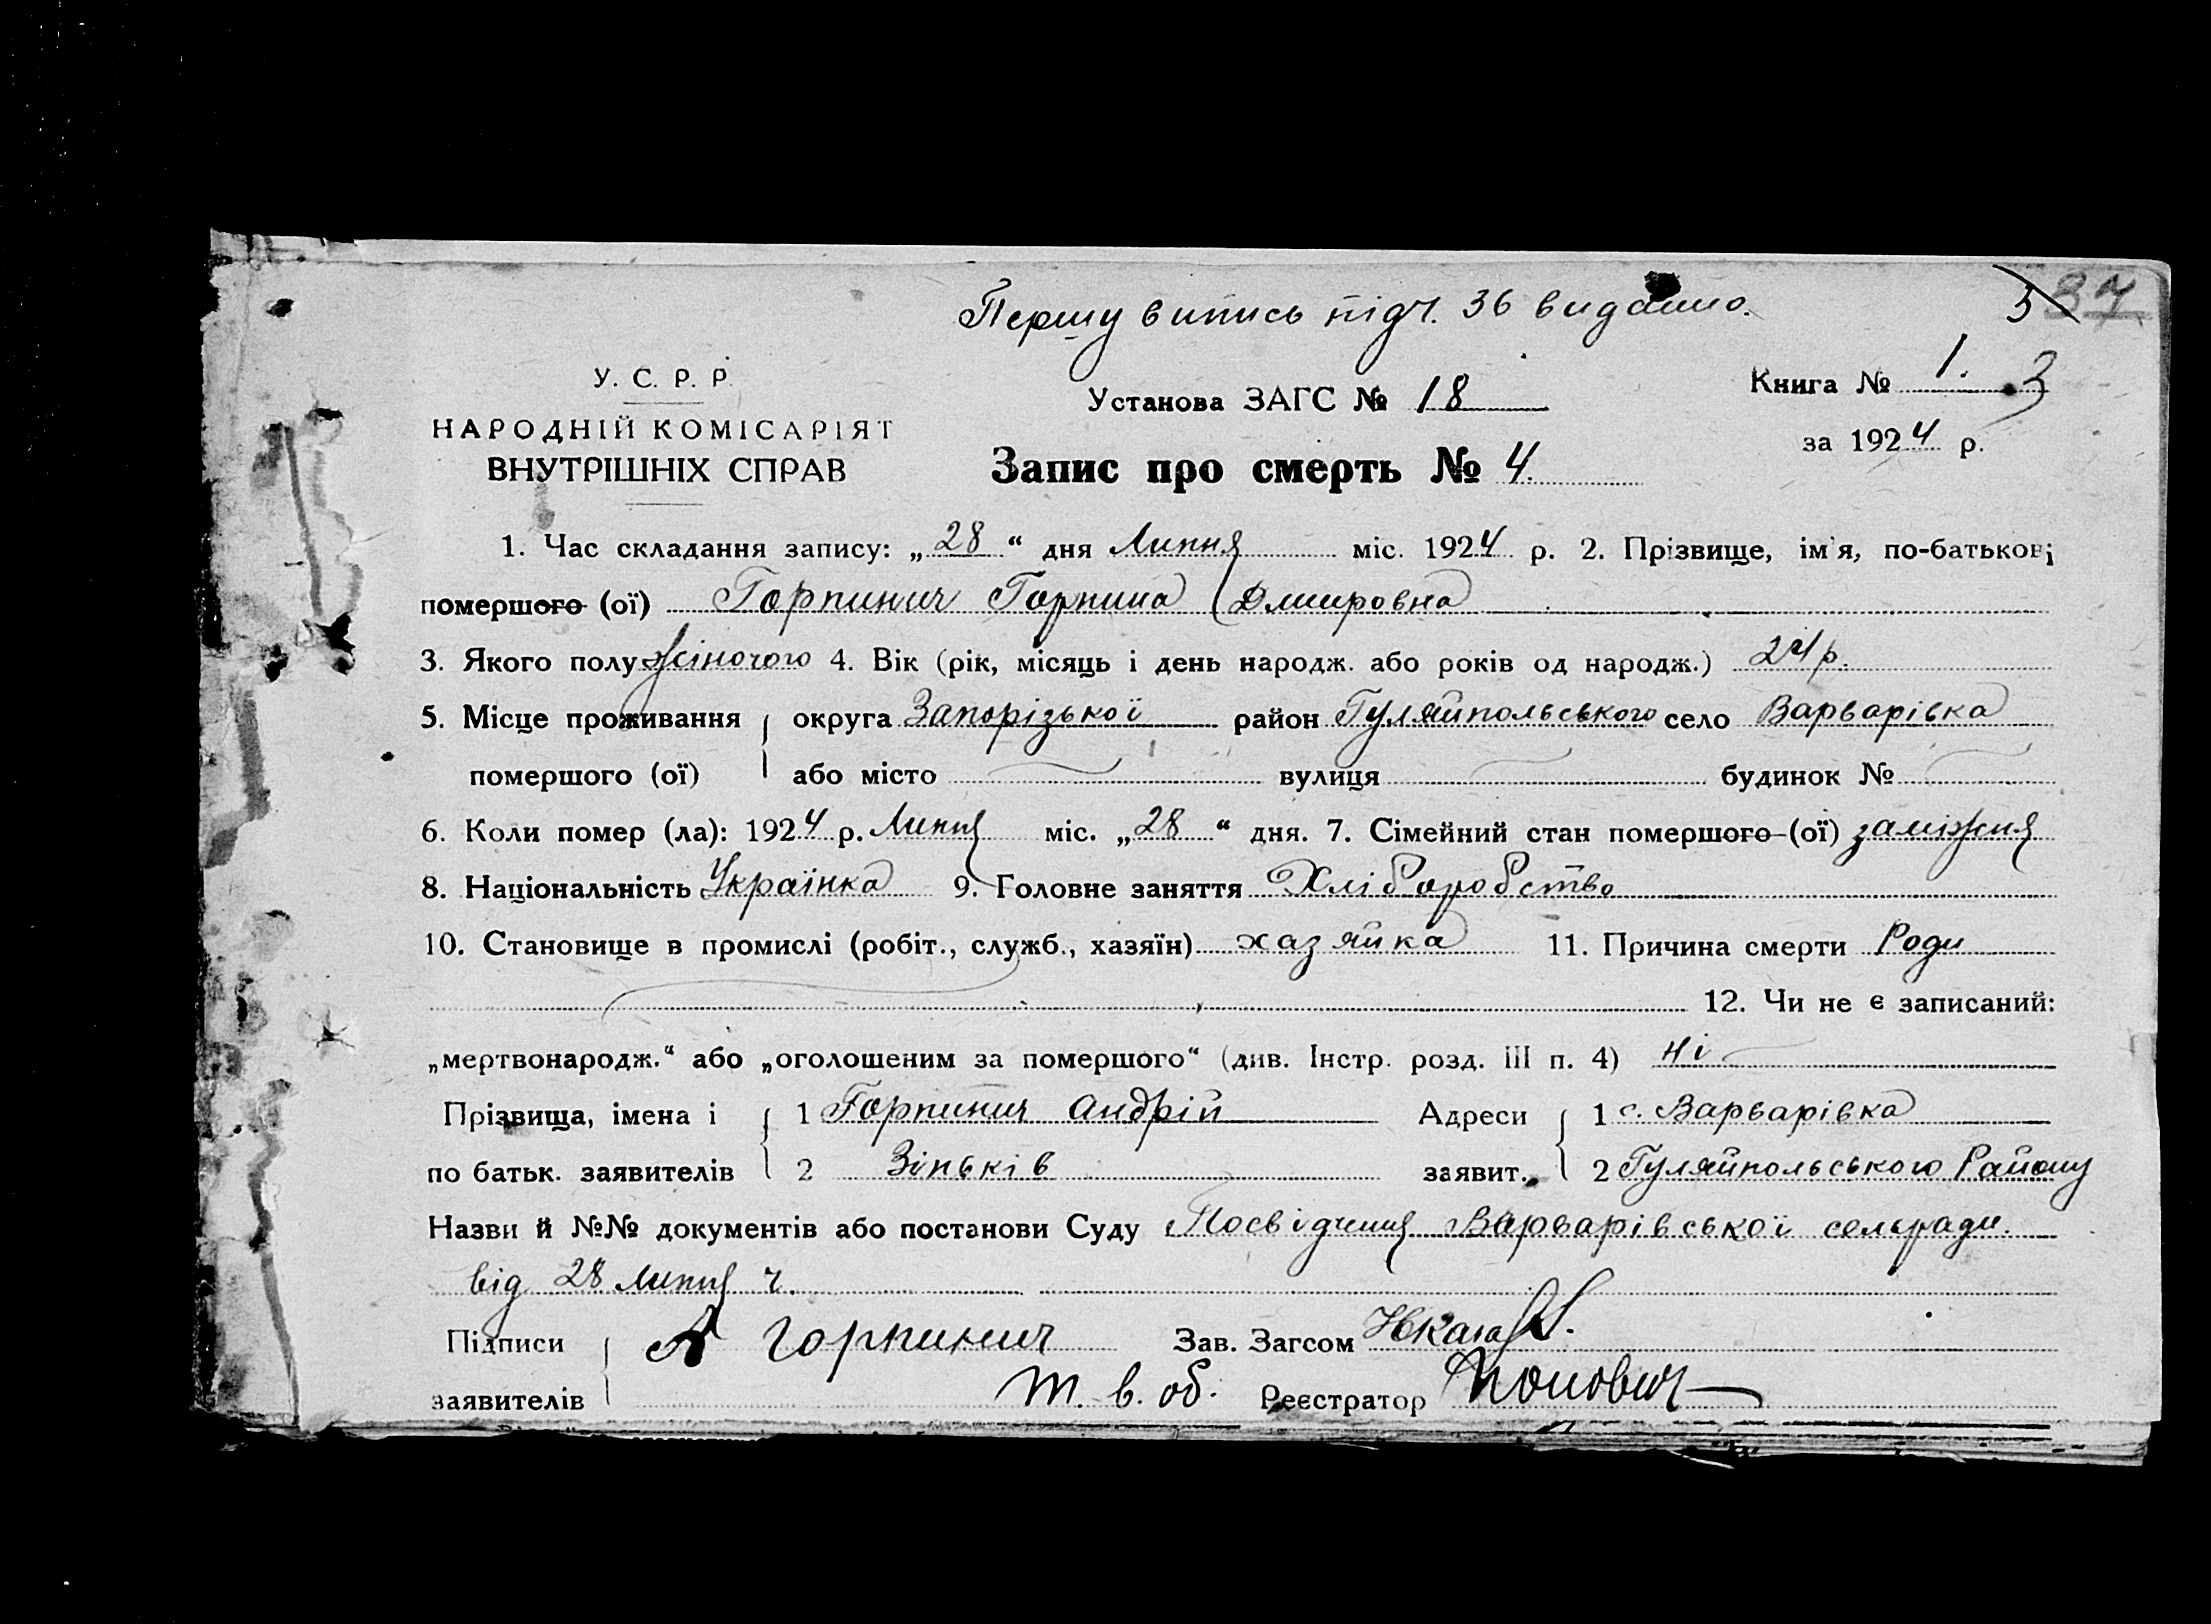 Першу випись під ч. 36 видано.
5 37
У. С. Р. Р.
НАРОДНІЙ КОМІСАРІЯТ
ВНУТРІШНІХ СПРАВ
Установа ЗАГС № 18
Книга № 1. 3
за 1924 р.
Запис про смерть № 4.
1. Час складання запису: „28“ дня Липня міс. 1924 р. 2. Прізвище, ім'я, по-батькові
помершого (ої) Горпинич Горпина Дмитровна
3. Якого полу жіночого 4. Вік (рік, місяць і день народж. або років од народж.) 24 р.
5. Місце проживання округа Запорізької район Гуляйпольського село Варварівка
помершого (ої) або місто вулиця будинок №
6. Коли помер (ла): 1924 р. Липня міс. „28“ дня. 7. Сімейний стан помершого (ої) заміжня
8. Національність Українка 9. Головне заняття Хліборобство
10. Становище в промислі (робіт., служб., хазяїн) хазяйка 11. Причина смерти Роди
12. Чи не є записаний:
„мертвонародж.“ або „оголошеним за помершого“ (див. Інстр. розд. III п. 4) ні
Прізвища, імена і 1 Горпинич Андрій Адреси 1 с. Варварівка
по батьк. заявителів 2 Зіньків заявит. 2 Гуляйпольського Району
Назви й №№ документів або постанови Суду Посвідчення Варварівської сельради.
від 28 Липня ч.
Підписи А Горпинич Зав. Загсом
заявителів т. в. об. Реєстратор Попович